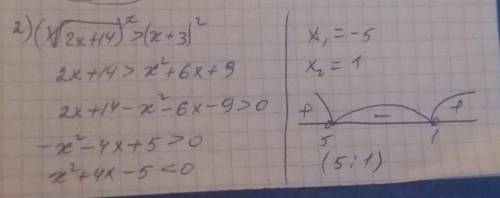 2) (√2x+14)² > (x+3)²
2x+14 > x²+6x+9
2x+14-x²-6x-9>0
-x²-4x+5>0
x²+4x-5<0
x₁=-5
x₂=1
+ - +
5 1
(5;1)